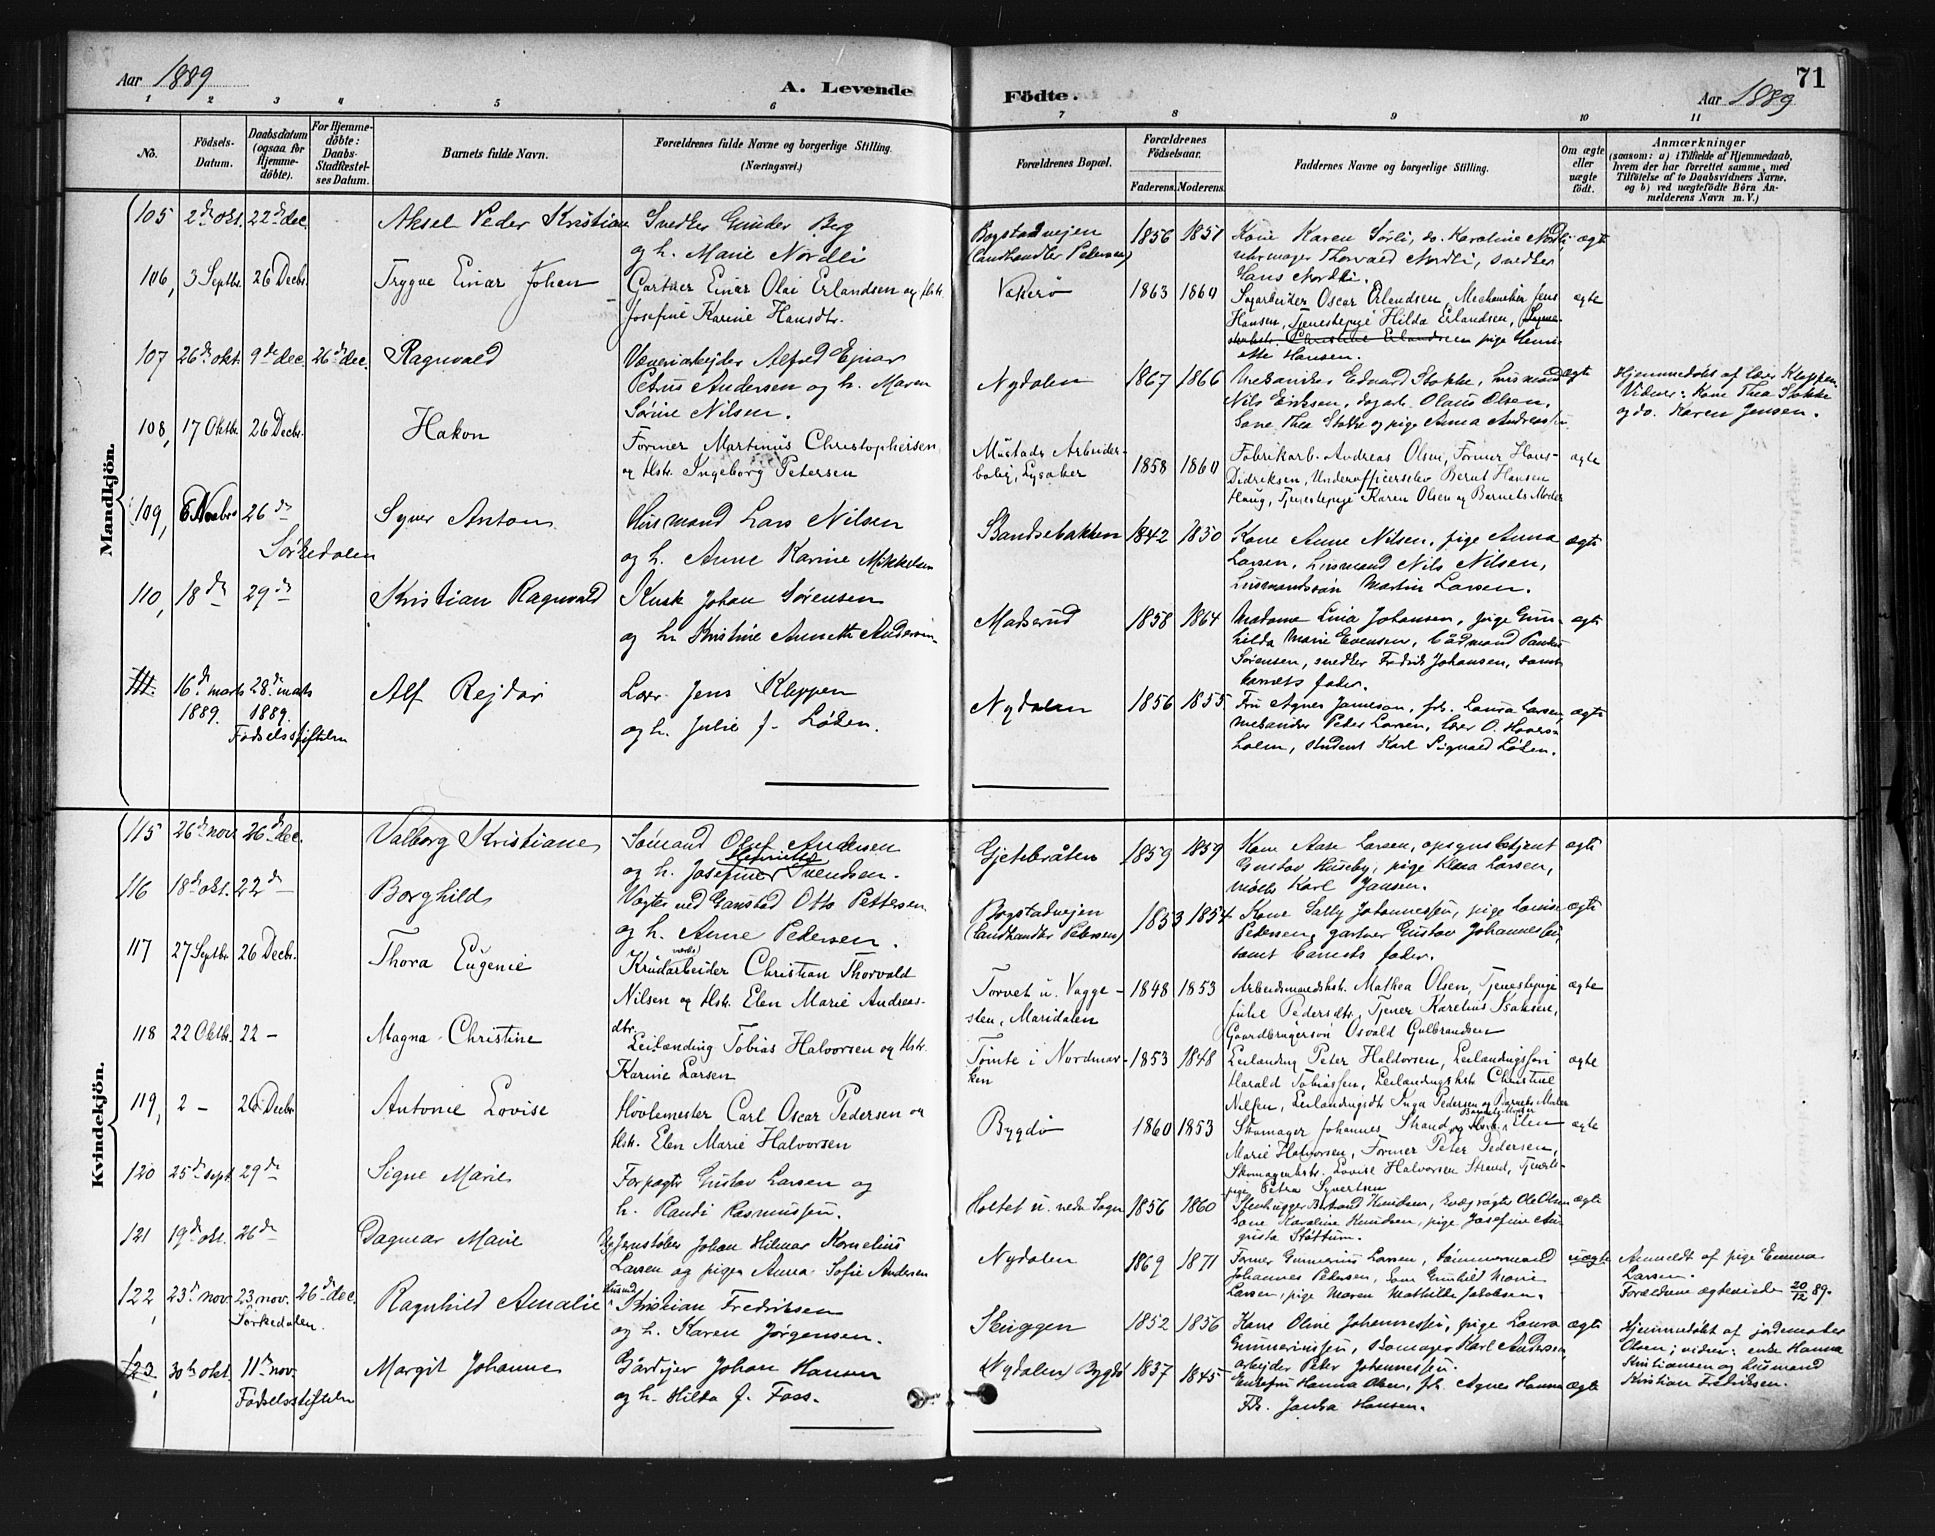 Aar 1889
A. Levende
Födte.
Aar 1889
71
1 2 3 4 5 6
7 8 9 10 11
No.
Födsels-Datum.
Daabsdatum (ogsaa for Hjemme-döbte).
For Hjemme-döbte: Daabs-Stadfæstel-ses Datum.
Barnets fulde Navn.
Forældrenes fulde Navne og borgerlige Stilling.
(Næringsvei.)
Forældrenes Bopæl.
Forældrenes Födselsaar.
Faderens. Moderens.
Faddernes Navne og borgerlige Stilling.
Om ægte eller uægte födt.
Anmærkninger
(saasom: a) i Tilfælde af Hjemmedaab,
hvem der har forrettet samme, med
Tilföielse af to Daabsvidners Navne.
og b) ved uægtefödte Börn An-
melderens Navn m. V.)
Mandkjön.
105 2d okt. 22d dec. Aksel Peder Kristian Snedker Gunder Berg
og h. Marie Nordli
Bogstadvejen
(Landhandler Petersen)
1856 1851 Kone Karen Sørli, do. Karoline Nordli ægte
urmager Thorvald Nordli, snedker
Hans Nordli.
106, 3 Septbr. 26 Decbr. Trygve Einar Johan Gartner Einar Olai Erlandsen og Hstr.
Josefine Karine Hansdtr.
Vækerø 1863 1860 Sagarbeider Oscar Erlandsen, Mechaniker Jens ægte
Hansen, Tjenestepige Hilda Erlandsen,
Christine Erlandsen pige Henri-
ette Hansen.
107 26d okt. 9d dec. 26d dec. Ragnvald Væveriarbejder Alfred Ejnar
Petrus Andersen og h. Maren
Sørine Nilsen.
Nydalen 1867 1866 Mekaniker Edvard Stokke, husmand ægte
Nils Eriksen, dagarb. Olaus Olsen,
Kone Thea Stokke og pige Anna
Hjemmedøbt af lærer Kleppen
Vidner: Kone Thea Stokke
og do. Karen Jensen.
108, 17 Oktbr. 26 Decbr. Hakon Former Martinus Christophersen
og Hstr. Ingeborg Petersen
Mustads Arbeider-
bolig, Lysaker
1858 1860 Fabrikarb. Andreas Olsen, Former Hans ægte
Didriksen, Underofficerselev Bernt Hansen
Haug, Tjenestepige Karen Olsen og Barnets Moder
109, 6 Novbr 26d Syver Anton Husmand Lars Nilsen
Sørkedalen
og h. Anne Karine Mikkelsen
Bandsebakken 1842 1850 Kone Anne Nilsen, pige Anna ægte
Larsen, Husmand Nils Nilsen,
Husmandssøn Martin Larsen.
110, 18d 29d Kristian Ragnvald Kusk Johan Sørensen
og h. Kristine Annette Andersen
Madserud 1858 1864 Madame Lina Johansen, pige Gun- ægte
hilda Marie Evensen, Baadmand
Sørensen, snedker Fredrik Johansen, samt
barnets fader.
111. 16d marts 28d marts Alf Rejdar Lærer Jens Kleppen
1889. 1889.
Fødselsstiftelsen
og h. Julie J. Løken.
Nydalen 1856 1855 Fru Agnes Jameson, frk. Laura Larsen, ægte
Mekaniker Peder Larsen, lærer O. Havers-
holm, student Karl Sigvald Løken.
Kvindekjön.
115 26d nov. 26d dec. Valborg Kristiane Sømand Oluf Andersen
Henriette
og h. Josefine Svendsen.
Gjetebråten 1859 1859 Kone Aase Larsen, opsynsbetjent ægte
Gustav Huseby, pige Klara Larsen,
Karl Jansen.
116 18d okt. 22d Borghild Vogter ved Gaustad Otto Pettersen
og h. Anne Pedersen.
Bogstadvejen
(Landhandler Petersen)
1853 1854 Kone Sally Johannessen, pige Lovise ægte
Petersen, gartner Gustav Johannessen,
samt barnets fader.
117 27 Septbr. 26 Decbr. Thora Eugenie Krudarbeider Christian Thorvald
Nilsen og Hstr. Elen Marie Andreas-
dtr.
Torvet u. Vagge-
sten, Maridalen
1848 1853 Arbeidsmandshstr. Mathea Olsen, Tjenestepige ægte
Julie Pedersdtr., Tjener Karelius Isaksen,
Gaardbrugersøn Osvald Gulbrandsen
118 22 Oktbr. 22 - Magna Christine Leilænding Tobias Halvorsen og Hstr.
Karine Larsen
Tømte i Nordmar-
ken
1853 1848 Leilænding Peter Haldorsen, Leilændingssøn ægte
Harald Tobiassen, Leilændingshstr. Christine
Nilsen, Leilændingsdtr. Inga Pedersen og Barnets Moder
119, 2 - 26 Decbr Antonie Lovise Høvlemester Carl Oscar Pedersen og
Hstr. Elen Marie Halvorsen
Bygdø 1860 1853 Skomager Johannes Strand, Barnets Moder Elen ægte
Marie Halvorsen, Former Peter Pedersen,
Skomagerhstr. Lovise Halvorsen Strand, Tjeneste-
pige Petra Syvertsen
120 25d sept 29d Signe Marie Forpagter Gustav Larsen og
h. Randi Rasmussen.
Holtet u. nedre Sogn 1856 1860 Stenhugger Bertrand Knudsen, Ole Olsen ægte
Kone Karoline Knudsen, pige Josefine Au-
gusta Støttum.
121 19d okt. 26d Dagmar Marie Ug. Jernstøber Johan Hilmar Kornelius
Larsen og pige Anna Sofie Andersen
Nydalen 1869 1871 Former Gunerius Larsen, tømmermand uægte
Johannes Pedersen, Kone Gunhild Marie
Larsen, pige Maren Mathilde Jakobsen.
Anmeldt af pige Emma
Larsen.
Forældrene ægteviede 20/12 89.
122, 23d nov. 23 nov. 26d dec. Ragnhild Amalie Husmd. Kristian Fredriksen
Sørkedalen.
og h. Karen Jørgensen.
Skuggen 1852 1856 Kone Oline Johannessen, pige Laura ægte
Gunneriussen, Karl Andersen,
arbejder Peter Johannessen.
Hjemmedøbt af jordemoder
Olsen; vidner: enke Hanna
Kristiansen og husmand
Kristian Fredriksen.
123, 30d okt. 11d nov. Margit Johanne Gårdejer Johan Hansen
Fødselsstiftelsen
og h. Hilda J. Foss.
Nydalen Bygdø 1837 1845 Enkefru Hanna Olsen, frk. Agnes Hanna ægte
Frk. Janka Hansen.